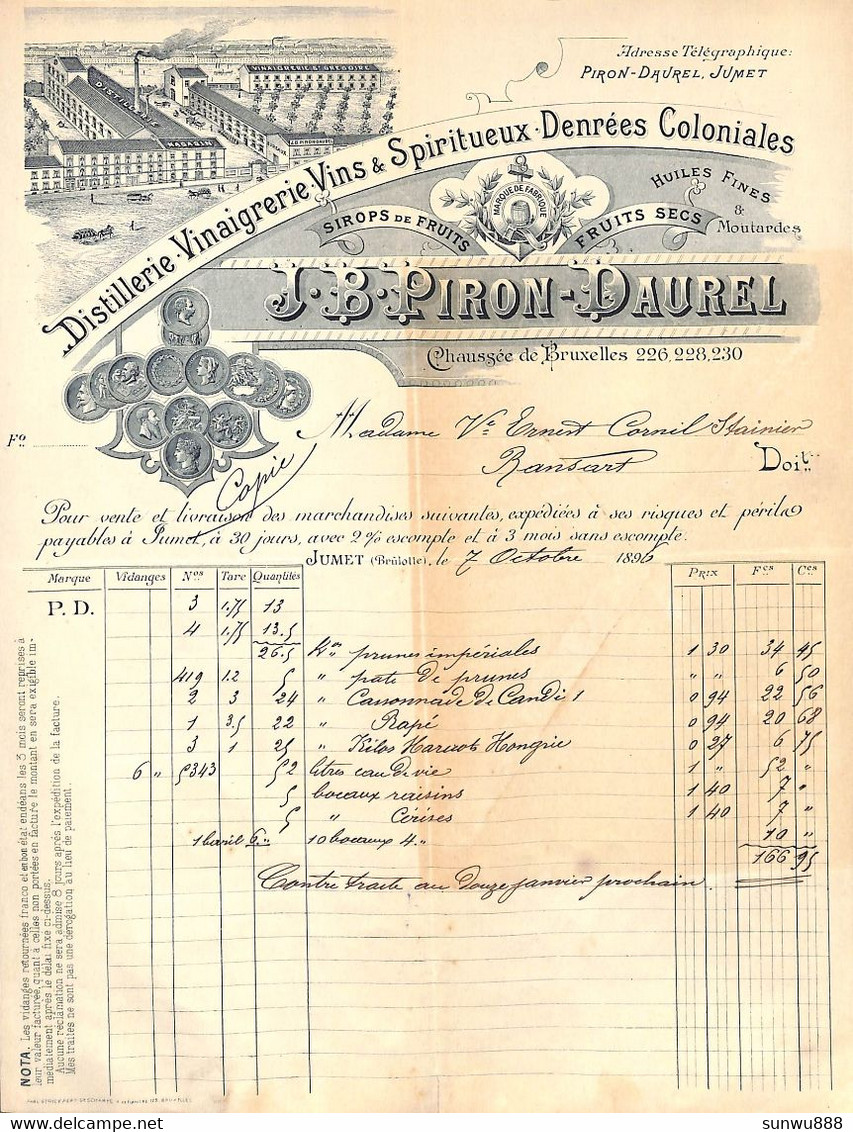 Adresse Télégraphique:
PIRON-DAUREL, JUMET
VINAIGRERIE ST GRÉGOIRE
DISTILLERIE
MAGASIN
Distillerie · Vinaigrerie · Vins & Spiritueux · Denrées Coloniales
MARQUE DE FABRIQUE
SIROPS DE FRUITS
FRUITS SECS
HUILES FINES
&
Moutardes
J·B·PIRON-DAUREL
Chaussée de Bruxelles 226, 228, 230
Fº
Madame Ve Ernest Cornil Stainier
Ransart Doit
Copie
Pour vente et livraison des marchandises suivantes, expédiées à ses risques et périls
payables à Jumet, à 30 jours, avec 2% escompte et à 3 mois sans escompte.
JUMET (Brûlotte), le 7 Octobre 1896
Marque Vidanges Nos Tare Quantités PRIX Fcs Ces
P. D. 3 1.75 13
4 1.75 13.5
26.5 Kos prunes impériales 1 30 34 45
419 1.2 5 " pate de prunes " " 6 50
2 3 24 " Cassonnade de Candi 1 0 94 22 56
1 3.5 22 " Rapé 0 94 20 68
3 1 25 " Kilos Haricots Hongrie 0 27 6 75
6 " 5343 52 litres eau de vie 1 " 52 "
5 bocaux raisins 1 40 7 "
5 " Cérises 1 40 7 "
1 baril 6 " 10 bocaux 4 " 10 "
166 95
Contre traite au douze janvier prochain.
NOTA. Les vidanges retournées franco et en bon état endéans les 3 mois seront reprises à
leur valeur facturée, quant à celles non portées en facture le montant en sera exigible im-
médiatement après le délai fixé ci-dessus.
Aucune réclamation ne sera admise 8 jours après l'expédition de la facture.
Mes traites ne sont pas une dérogation au lieu de paiement.
delcampe.net
sunwu888